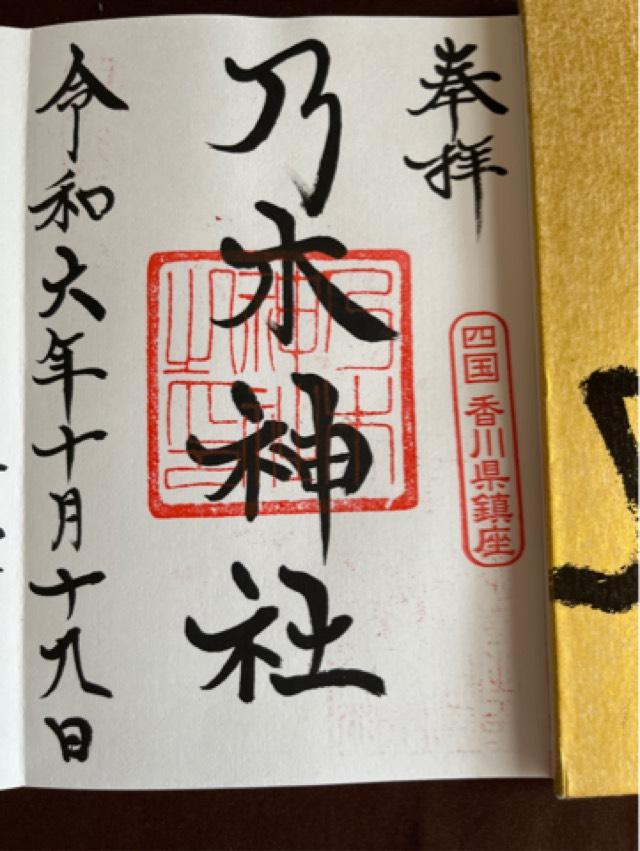 奉拝
四国 香川県鎮座
乃木神社
令和六年十月十九日